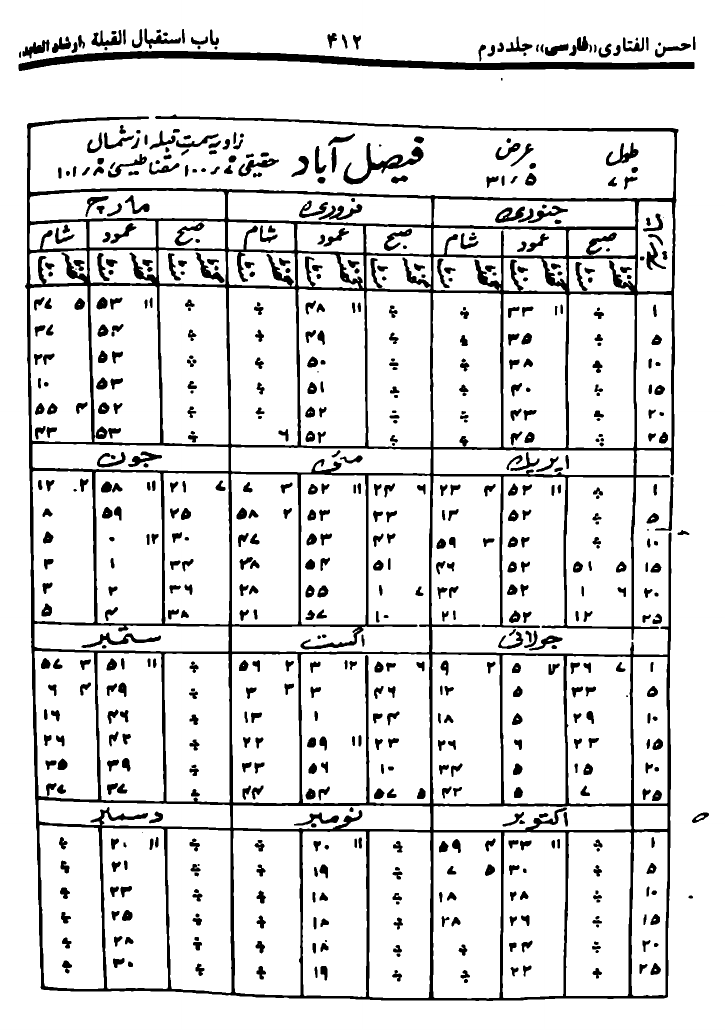 احسن الفتاوی ((فارسی)) جلد دوم ۴۱۲ باب استقبال القبلة
طول عرض فیصل آباد زاویہ سمت قبلہ از شمال
۷۳ ۳۱٫۵ حقیقی ۱۰۰٫۷ مقناطیسی ۱۰۱٫۸
جنوری فروری مارچ
صبح عمود شام صبح عمود شام صبح عمود شام
۱ ÷ ۱۱ ۳۳ ÷ ÷ ۱۱ ۴۸ ÷ ÷ ۱۱ ۵۳ ۵ ۴۷
۵ ÷ ۳۵ ÷ ÷ ۴۹ ÷ ÷ ۵۴ ۳۷
۱۰ ÷ ۳۸ ÷ ÷ ۵۰ ÷ ÷ ۵۳ ۲۳
۱۵ ÷ ۴۰ ÷ ÷ ۵۱ ÷ ÷ ۵۳ ۱۰
۲۰ ÷ ۴۳ ÷ ÷ ۵۲ ÷ ÷ ۵۲ ۴ ۵۵
۲۵ ÷ ۴۵ ÷ ÷ ۵۲ ۶ ÷ ۵۳ ۴۳
اپریل مئی جون
۱ ÷ ۱۱ ۵۲ ۴ ۲۳ ۶ ۲۴ ۱۱ ۵۲ ۳ ۷ ۷ ۲۱ ۱۱ ۵۸ ۲ ۱۲
۵ ÷ ۵۲ ۱۳ ۳۳ ۵۳ ۲ ۵۸ ۲۵ ۵۹ ۸
۱۰ ÷ ۵۲ ۳ ۵۹ ۴۲ ۵۳ ۴۷ ۳۰ ۱۲ ۰ ۵
۱۵ ۵ ۵۱ ۵۲ ۴۶ ۵۱ ۵۴ ۳۸ ۳۴ ۱ ۳
۲۰ ۶ ۱ ۵۲ ۳۴ ۷ ۱ ۵۵ ۲۸ ۳۶ ۲ ۳
۲۵ ۱۲ ۵۲ ۲۱ ۱۰ ۵۷ ۲۱ ۳۸ ۴ ۵
جولائی اگست ستمبر
۱ ۷ ۳۶ ۱۲ ۵ ۲ ۹ ۶ ۵۳ ۱۲ ۳ ۲ ۵۶ ÷ ۱۱ ۵۱ ۳ ۵۷
۵ ۳۳ ۵ ۱۲ ۴۶ ۳ ۳ ۳ ÷ ۴۹ ۴ ۶
۱۰ ۲۹ ۵ ۱۸ ۳۴ ۱ ۱۳ ÷ ۴۶ ۱۶
۱۵ ۲۳ ۶ ۲۶ ۲۳ ۱۱ ۵۹ ۲۲ ÷ ۴۲ ۲۶
۲۰ ۱۵ ۵ ۳۴ ۱۰ ۵۶ ۳۳ ÷ ۳۹ ۳۵
۲۵ ۷ ۵ ۴۲ ۵ ۵۷ ۵۴ ۴۴ ÷ ۳۷ ۴۷
اکتوبر نومبر دسمبر
۱ ÷ ۱۱ ۳۳ ۴ ۵۹ ÷ ۱۱ ۲۰ ÷ ÷ ۱۱ ۲۰ ÷
۵ ÷ ۳۰ ۵ ۷ ÷ ۱۹ ÷ ÷ ۲۱ ÷
۱۰ ÷ ۲۸ ۱۸ ÷ ۱۸ ÷ ÷ ۲۳ ÷
۱۵ ÷ ۲۶ ۲۸ ÷ ۱۸ ÷ ÷ ۲۵ ÷
۲۰ ÷ ۲۴ ÷ ÷ ۱۸ ÷ ÷ ۲۸ ÷
۲۵ ÷ ۲۲ ÷ ÷ ۱۹ ÷ ÷ ۳۰ ÷